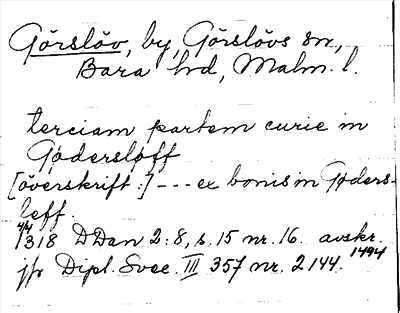 Görslöv, by, Görslövs sn,
Bara hd, Malm. l.
terciam partem curie in
Gødersløff
[överskrift:] --- ex bonis in Gøders-
leff.
4/4 1318 DDan 2:8, s. 15 nr. 16. avskr. 1494
jfr Dipl. Svec. III 357 nr. 2144.